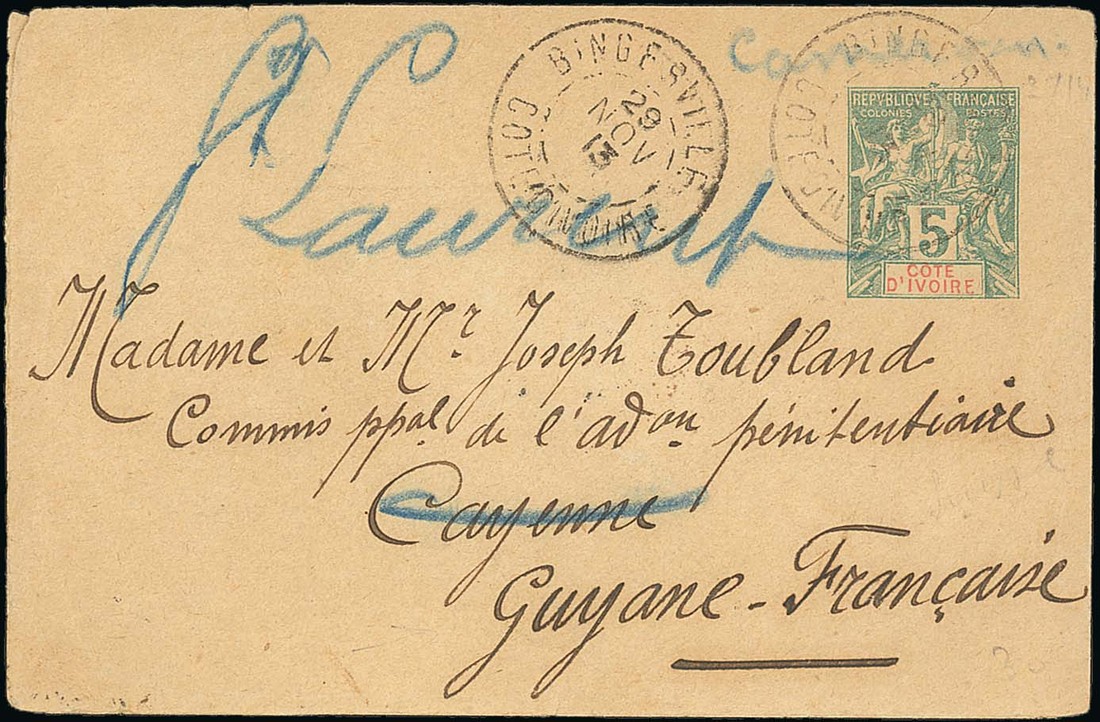 BINGERVILLE
29
NOV
13
COTE D'IVOIRE
RÉPVBLIQVE FRANÇAISE
COLONIES POSTES
5
COTE
D'IVOIRE
St Laurent
Madame et Mr. Joseph Toubland
Commis ppal de l'adon pénitentiaire
Cayenne
Guyane - Française